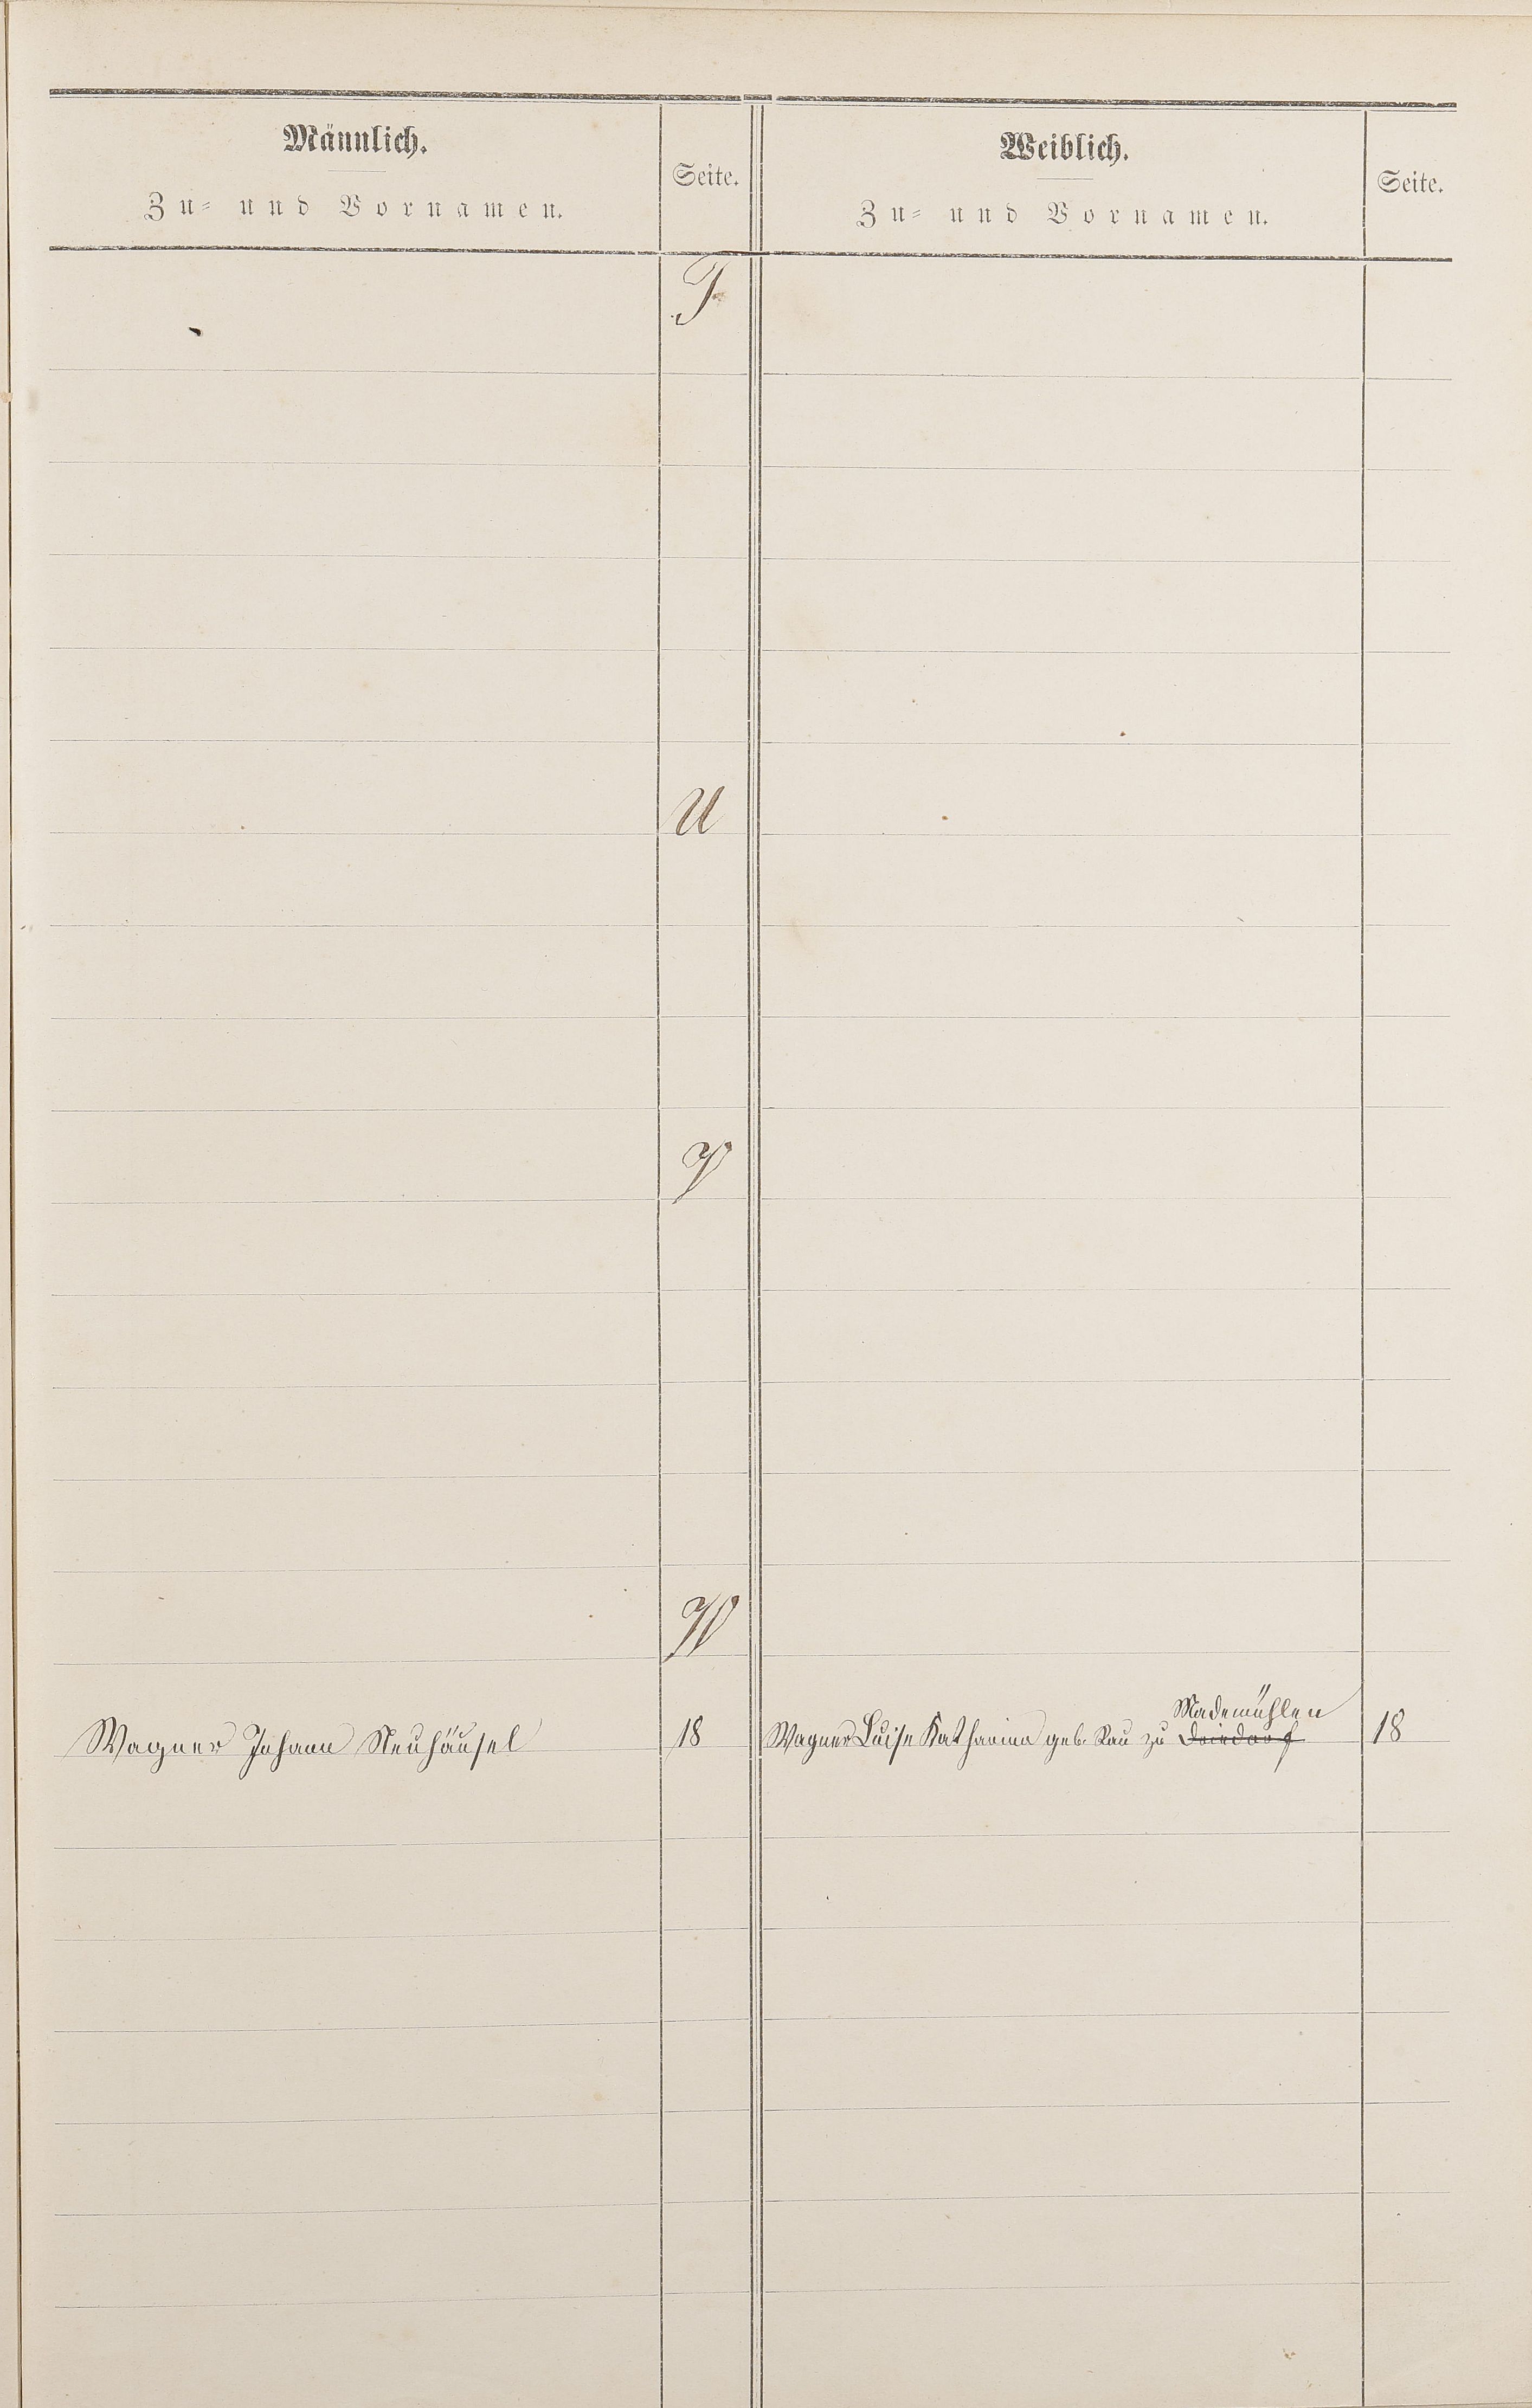 Männlich.
Zu- und Vornamen.
Seite.
Weiblich.
Zu- und Vornamen.
Seite.
T
U
V
W
Mademühlen
Wagner Johann Neuhäusel 18 Wagner Luise Katharina geb. Rau zu Driedorf 18